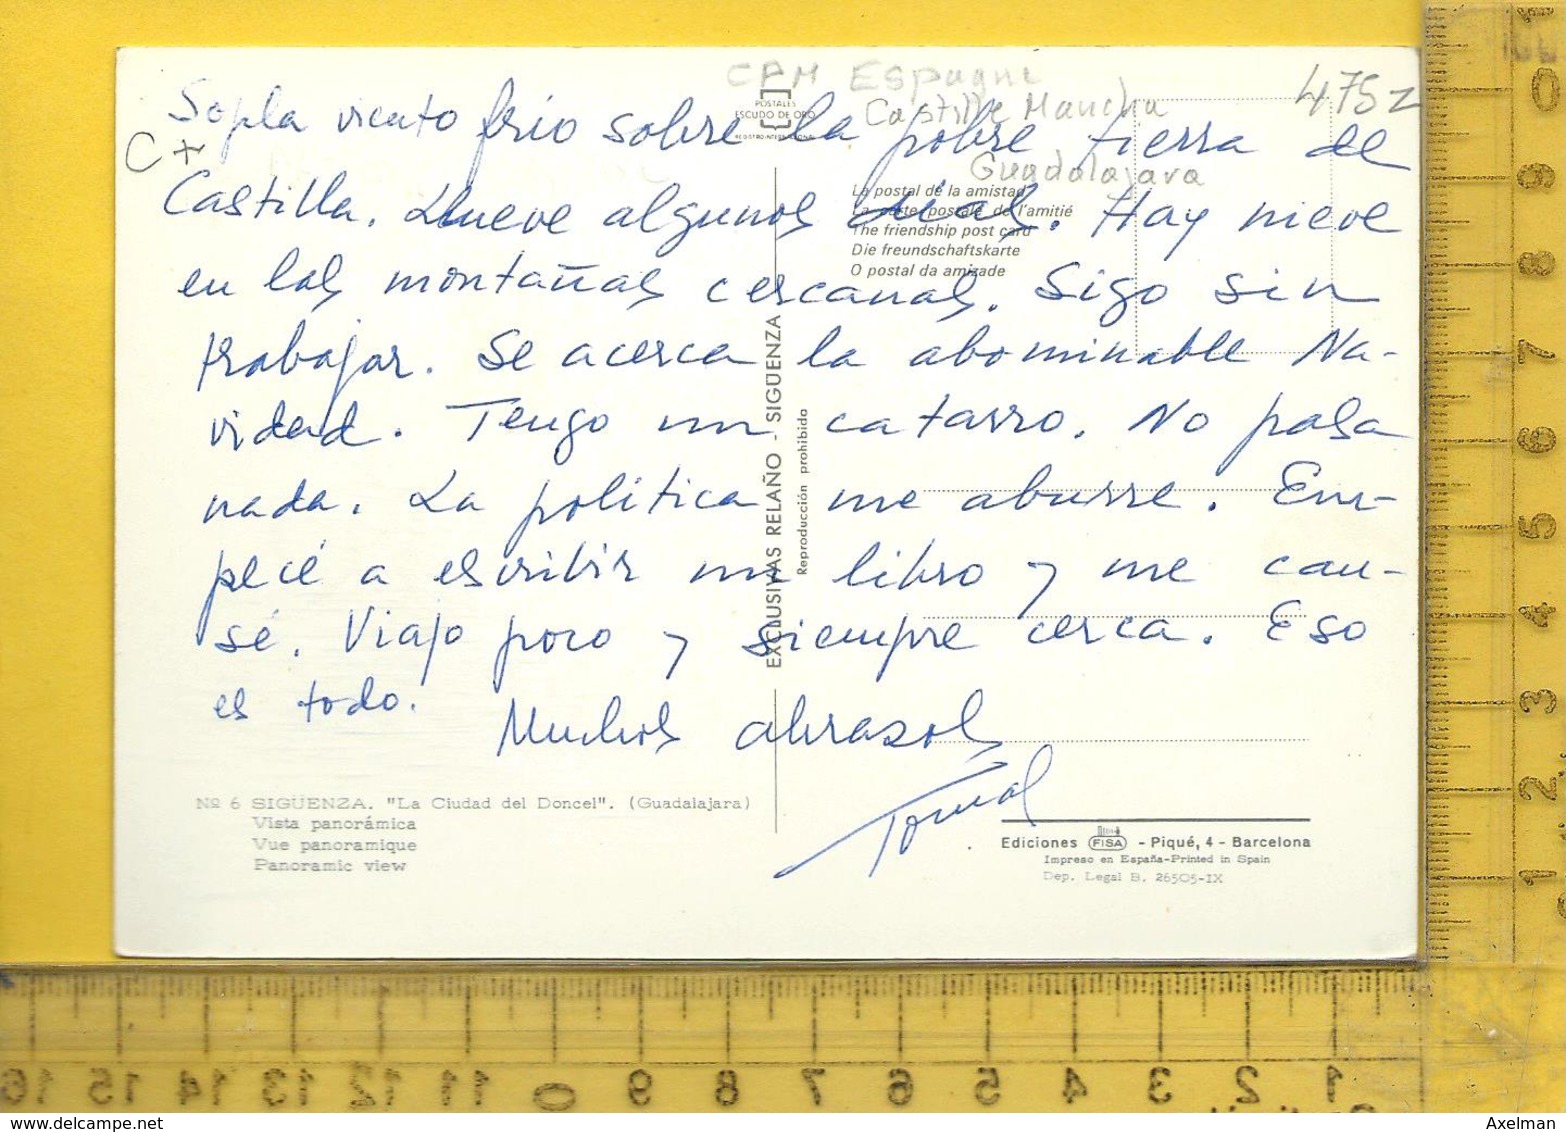 CPM Espagne
475z
Castille Mancha
Guadalajara
C+
POSTALES
ESCUDO DE ORO
REGISTRO INTERNACIONAL
Sopla viento frio sobre la pobre tierra de
Castilla. Llueve algunos dias. Hay nieve
en las montañas cercanas. Sigo sin
trabajar. Se acerca la abominable Na-
vidad. Tengo un catarro. No pasa
nada. La politica me aburre. Em-
pecé a escribir un libro y me can-
sé. Viajo poco y siempre cerca. Eso
es todo.
Muchos abrazos
Tomás
La postal de la amistad
La carte postale de l'amitié
The friendship post card
Die freundschaftskarte
O postal da amizade
EXCLUSIVAS RELAÑO - SIGÜENZA
Reproducción prohibida
Nº 6 SIGÜENZA. "La Ciudad del Doncel". (Guadalajara)
Vista panorámica
Vue panoramique
Panoramic view
Ediciones FISA - Piqué, 4 - Barcelona
Impreso en España-Printed in Spain
Dep. Legal B. 26505-IX
0 9 8 7 6 5 4 3 2 1
16 15 14 13 12 11 0 9 8 7 6 5 4 3 2 1
www.delcampe.net
Axelman